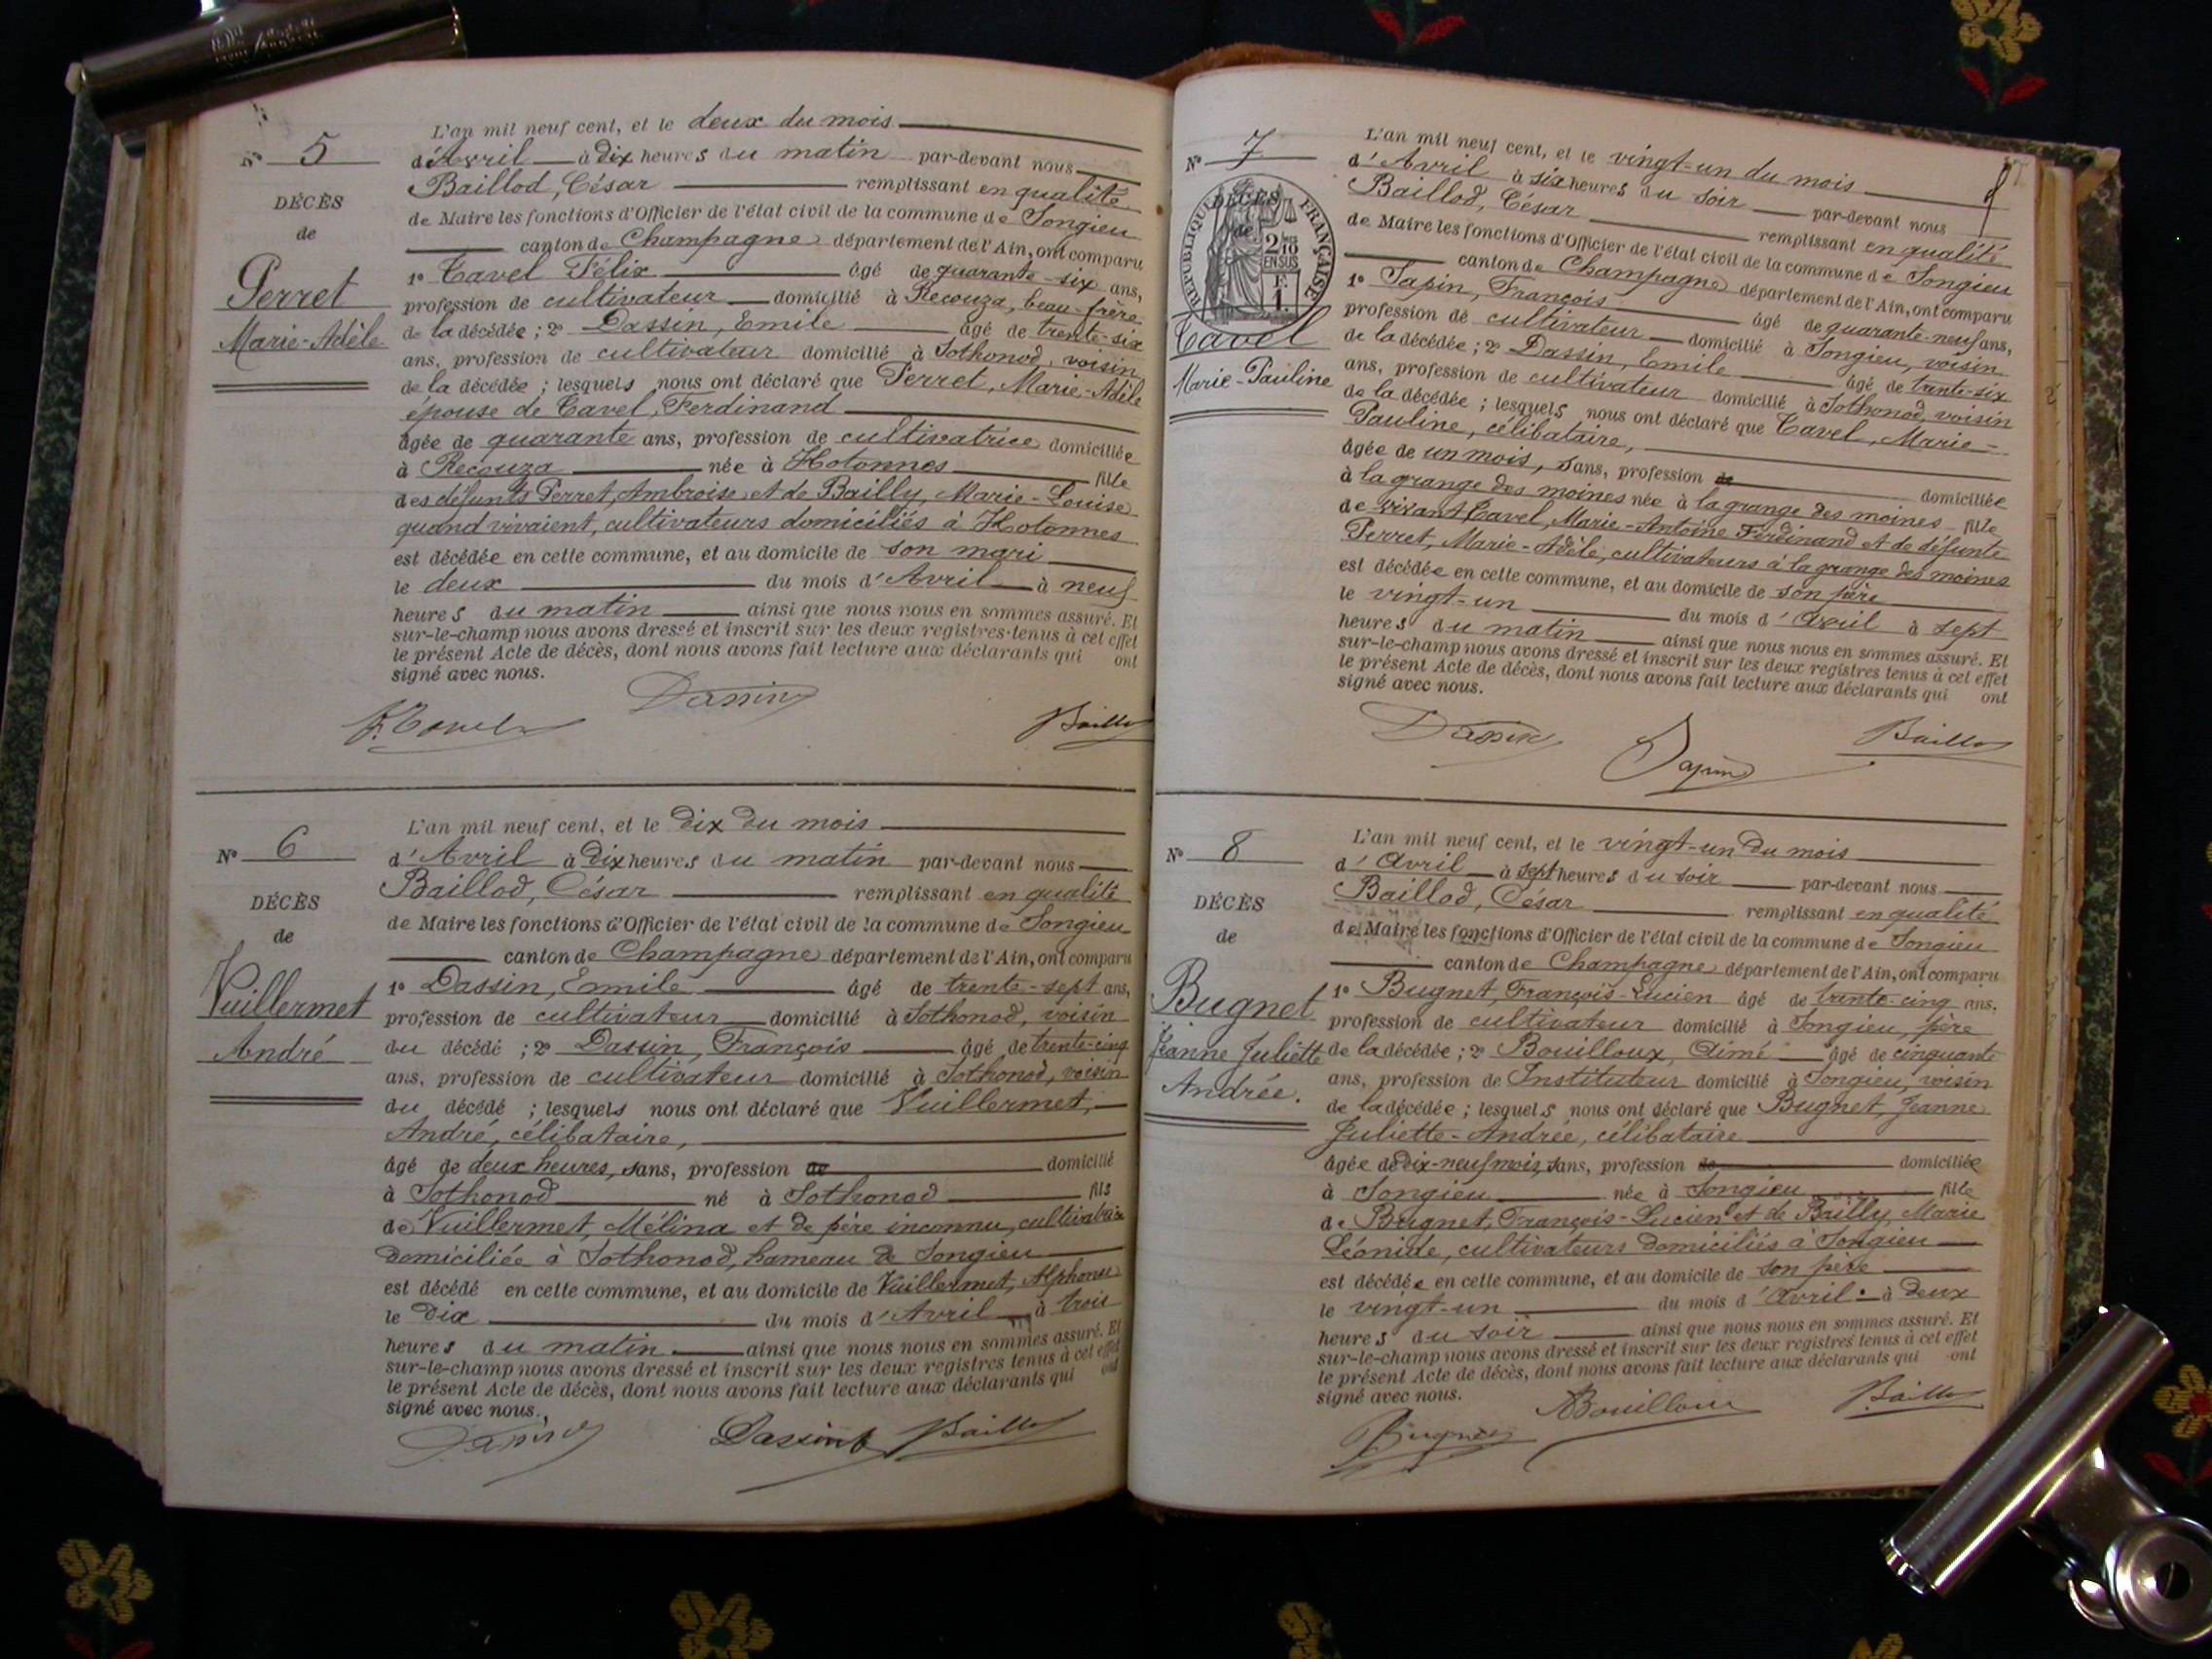 N° 5
DÉCÈS
de
Perret
Marie-Adèle
L'an mil neuf cent, et le deux du mois
d'Avril à dix heures du matin par-devant nous
Baillod, César remplissant en qualité
de Maire les fonctions d'Officier de l'état civil de la commune de Songieu
canton de Champagne département de l'Ain, ont comparu
1° Tavel Félix âgé de quarante-six ans,
profession de cultivateur domicilié à Recouza, beau-frère
de la décédée ; 2° Dassin, Emile âgé de trente-six
ans, profession de cultivateur domicilié à Sothonod, voisin
de la décédée ; lesquels nous ont déclaré que Perret, Marie-Adèle
épouse de Tavel, Ferdinand
âgée de quarante ans, profession de cultivatrice domiciliée
à Recouza née à Hotonnes fille
des défunts Perret, Ambroise et de Bailly, Marie-Louise
quand vivaient, cultivateurs domiciliés à Hotonnes
est décédée en cette commune, et au domicile de son mari
le deux du mois d'Avril à neuf
heures du matin ainsi que nous nous en sommes assuré. Et
sur-le-champ nous avons dressé et inscrit sur les deux registres tenus à cet effet
le présent Acte de décès, dont nous avons fait lecture aux déclarants qui ont
signé avec nous.
F. Tavel Dassin Baillod
N° 6
DÉCÈS
de
Vuillermet
André
L'an mil neuf cent, et le dix du mois
d'Avril à dix heures du matin par-devant nous
Baillod, César remplissant en qualité
de Maire les fonctions d'Officier de l'état civil de la commune de Songieu
canton de Champagne département de l'Ain, ont comparu
1° Dassin, Emile âgé de trente-sept ans,
profession de cultivateur domicilié à Sothonod, voisin
du décédé ; 2° Dassin, François âgé de trente-cinq
ans, profession de cultivateur domicilié à Sothonod, voisin
du décédé ; lesquels nous ont déclaré que Vuillermet,
André, célibataire,
âgé de deux heures, sans, profession de domicilié
à Sothonod né à Sothonod fils
de Vuillermet, Mélina et de père inconnu, cultivatrice
domiciliée à Sothonod, hameau de Songieu
est décédé en cette commune, et au domicile de Vuillermet, Alphonse
le dix du mois d'Avril à trois
heures du matin ainsi que nous nous en sommes assuré. Et
sur-le-champ nous avons dressé et inscrit sur les deux registres tenus à cet effet
le présent Acte de décès, dont nous avons fait lecture aux déclarants qui ont
signé avec nous.
Dassin Dassin Baillod
N° 7
DÉCÈS
de
RÉPUBLIQUE FRANÇAISE
2/10 EN SUS
F. 1.
Tavel
Marie-Pauline
L'an mil neuf cent, et le vingt-un du mois
d'Avril à six heures du soir par-devant nous
Baillod, César remplissant en qualité
de Maire les fonctions d'Officier de l'état civil de la commune de Songieu
canton de Champagne département de l'Ain, ont comparu
1° Sapin, François âgé de quarante-neuf ans,
profession de cultivateur domicilié à Songieu, voisin
de la décédée ; 2° Dassin, Emile âgé de trente-six
ans, profession de cultivateur domicilié à Sothonod, voisin
de la décédée ; lesquels nous ont déclaré que Tavel, Marie-
Pauline, célibataire,
âgée de un mois, sans, profession de domiciliée
à la grange des moines née à la grange des moines fille
de vivant Tavel, Marie-Antoine Ferdinand et de défunte
Perret, Marie-Adèle, cultivateurs à la grange des moines
est décédée en cette commune, et au domicile de son père
le vingt-un du mois d'Avril à sept
heures du matin ainsi que nous nous en sommes assuré. Et
sur-le-champ nous avons dressé et inscrit sur les deux registres tenus à cet effet
le présent Acte de décès, dont nous avons fait lecture aux déclarants qui ont
signé avec nous.
Dassin Sapin Baillod
N° 8
DÉCÈS
de
Bugnet
Jeanne Juliette
Andrée.
L'an mil neuf cent, et le vingt-un du mois
d'Avril à sept heures du soir par-devant nous
Baillod, César remplissant en qualité
de Maire les fonctions d'Officier de l'état civil de la commune de Songieu
canton de Champagne département de l'Ain, ont comparu
1° Bugnet, François-Lucien âgé de trente-cinq ans,
profession de cultivateur domicilié à Songieu, père
de la décédée ; 2° Bouilloux, Aimé âgé de cinquante
ans, profession de Instituteur domicilié à Songieu, voisin
de la décédée ; lesquels nous ont déclaré que Bugnet, Jeanne
Juliette-Andrée, célibataire
âgée de dix-neuf mois, sans, profession de domiciliée
à Songieu née à Songieu fille
de Bugnet, François-Lucien et de Bailly, Marie
Léonide, cultivateurs domiciliés à Songieu
est décédée en cette commune, et au domicile de son père
le vingt-un du mois d'Avril à deux
heures du soir ainsi que nous nous en sommes assuré. Et
sur-le-champ nous avons dressé et inscrit sur les deux registres tenus à cet effet
le présent Acte de décès, dont nous avons fait lecture aux déclarants qui ont
signé avec nous.
Bugnet ABouilloux Baillod